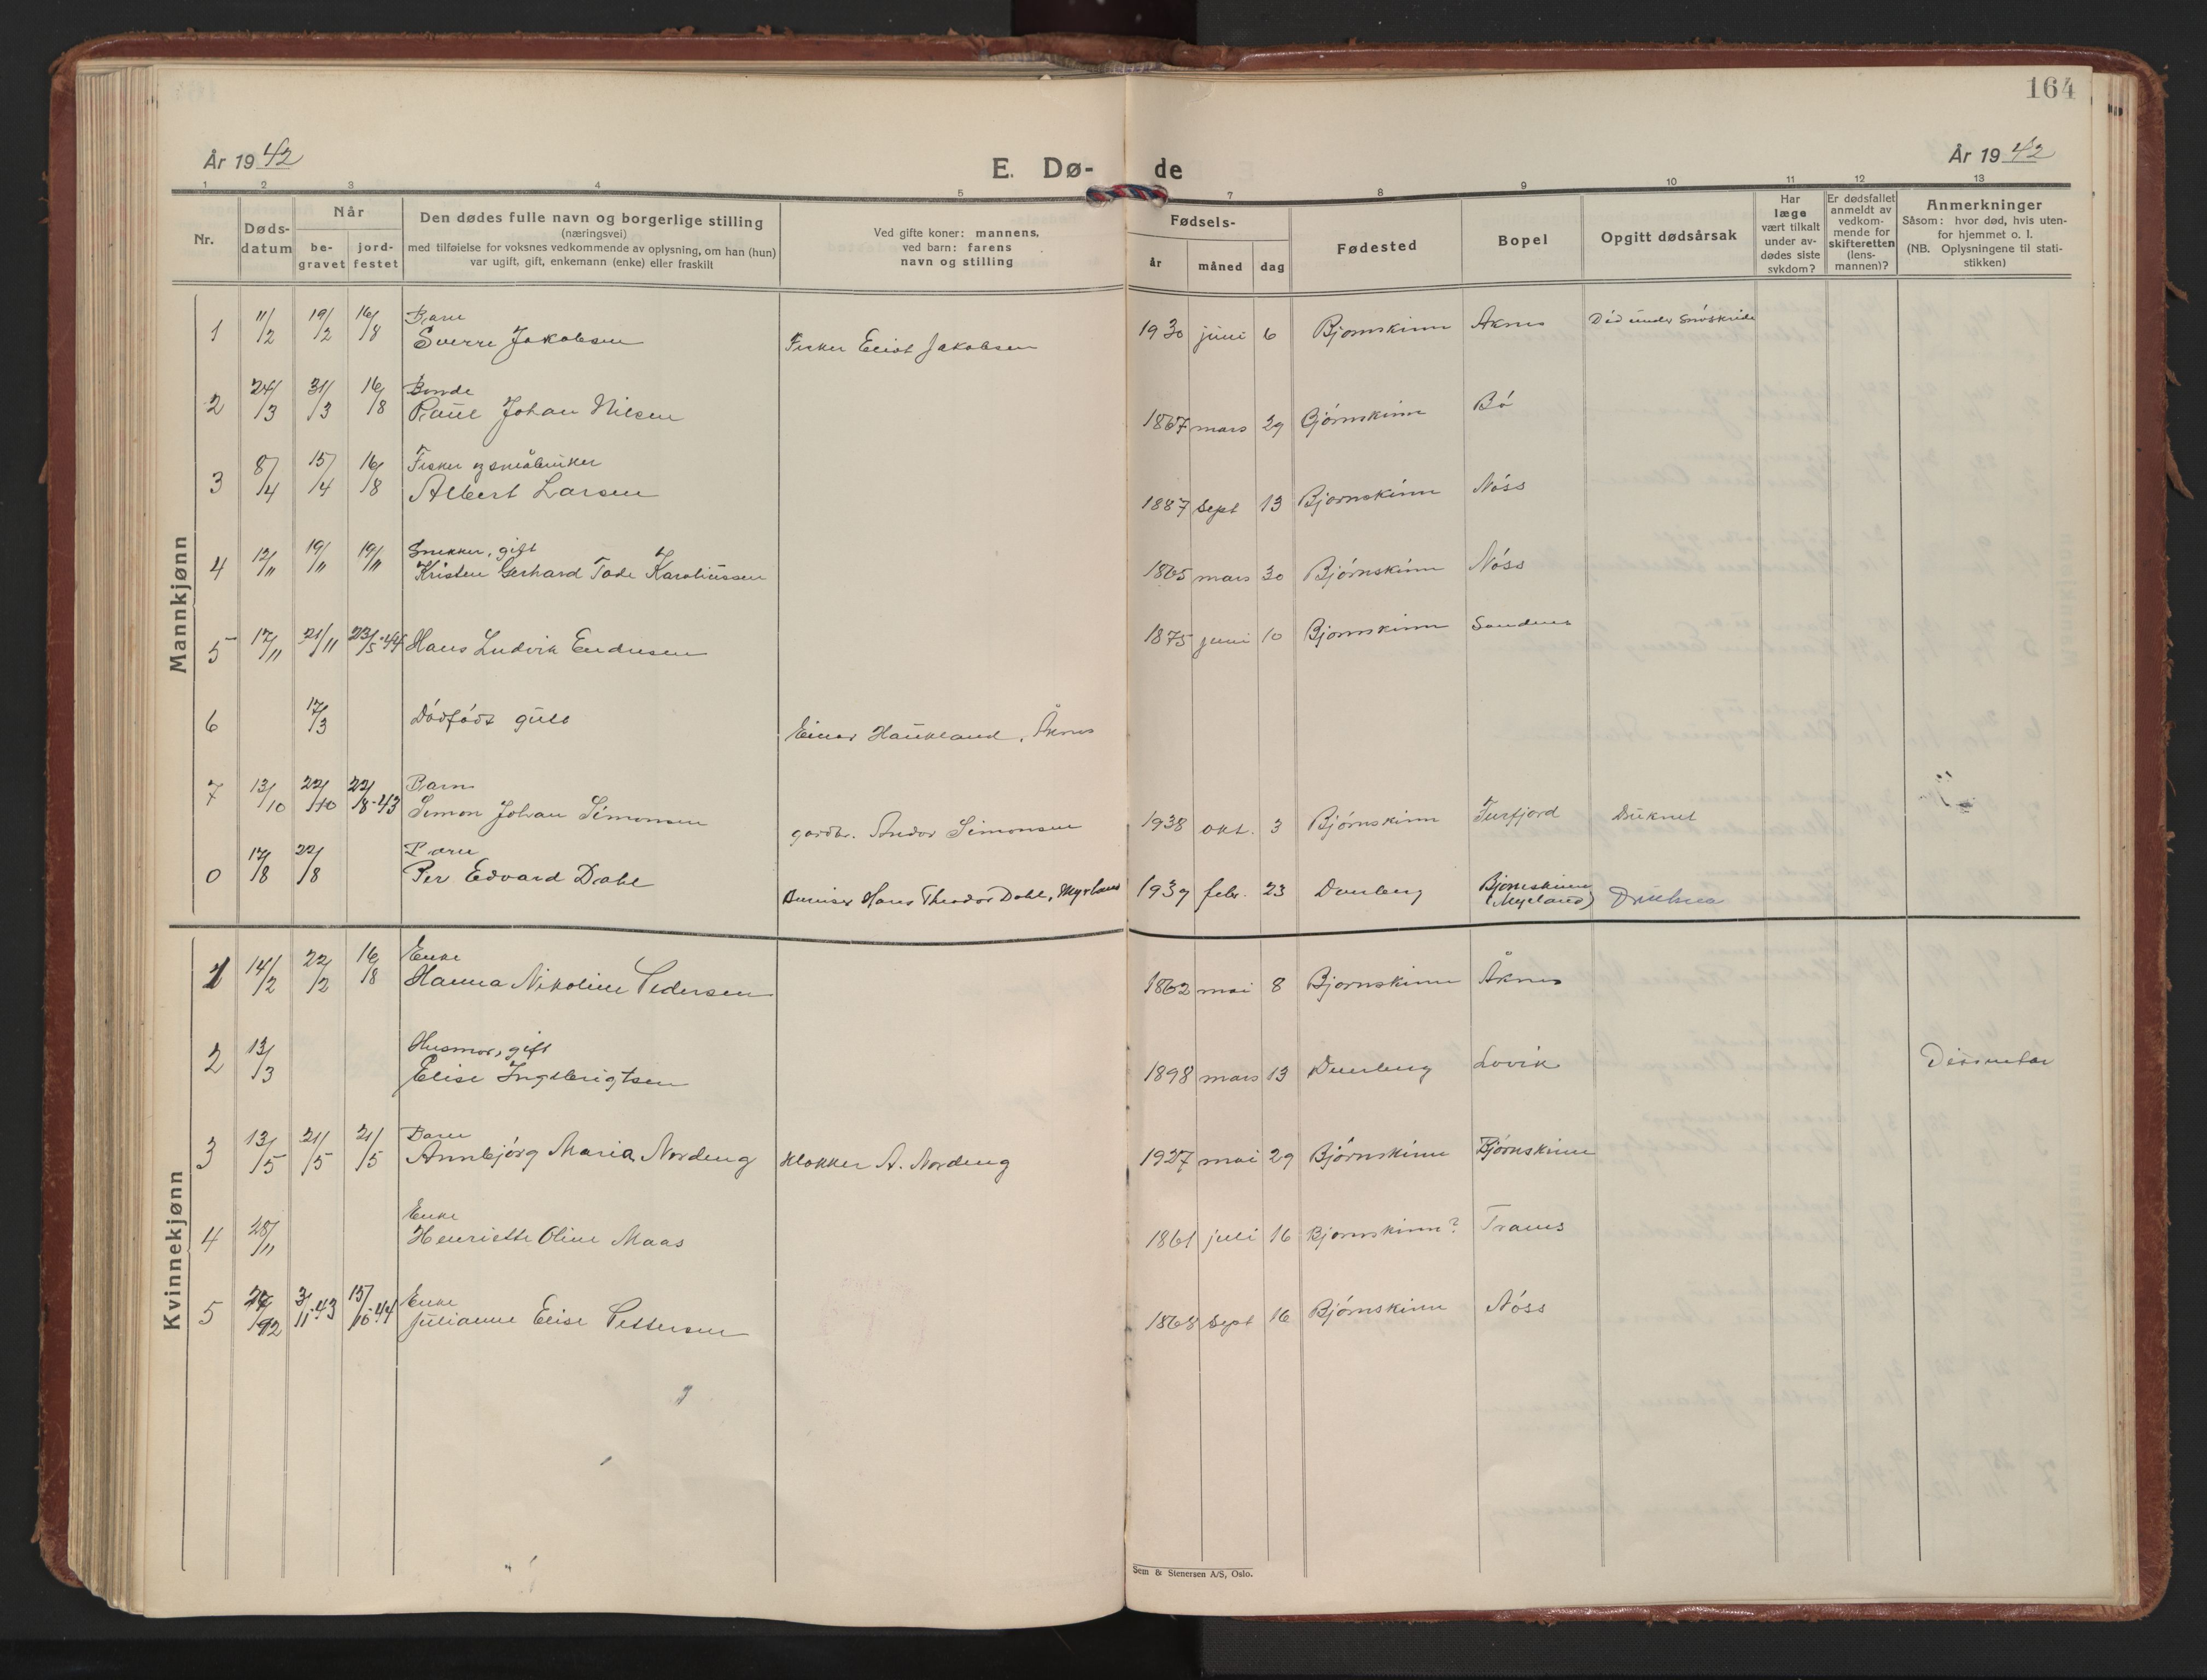 164
År 19 42
E. Dø- de
År 19 42
1 2 3 4 5 7 8 9 10 11 12 13
Nr.
Døds-
datum
Når
be-
gravet
jord-
festet
Den dødes fulle navn og borgerlige stilling
(næringsvei)
med tilføielse for voksnes vedkommende av oplysning, om han (hun)
var ugift, gift, enkemann (enke) eller fraskilt
Ved gifte koner: mannens,
ved barn: farens
navn og stilling
Fødsels-
år måned dag
Fødested
Bopel
Opgitt dødsårsak
Har
læge
vært tilkalt
under av-
dødes siste
sykdom?
Er dødsfallet
anmeldt av
vedkom-
mende for
skifteretten
(lens-
mannen)?
Anmerkninger
Såsom: hvor død, hvis uten-
for hjemmet o. l.
(NB. Oplysningene til stati-
stikken)
Mannkjønn
1 11/2 19/2 16/8 Barn
Sverre Jakobsen Fisker Eliot Jakobsen 1930 juni 6 Bjørnskinn Åknes Död under Snöskride
2 24/3 31/3 16/8 Bonde
Paul Johan Nilsen 1867 mars 29 Bjørnskinn Bö
3 8/4 15/4 16/8 Fisker og småbruker
Albert Larsen 1887 Sept 13 Bjørnskinn Nöss
4 12/11 19/11 19/11 Snekker, gift
Kristen Gerhard Tode Karoliussen 1865 mars 30 Bjørnskinn Nöss
5 17/11 21/11 23/5-44 Hans Ludvik Endresen 1875 juni 10 Bjørnskinn Sandnes
6 17/3 Dödfödt gutt Einar Haukland, Åknes
7 13/10 22/10 22/8-43 Barn
Simon Johan Simonsen gardbr. Andor Simonsen 1938 okt. 3 Bjørnskinn Furfjord Druknet
0 17/8 22/8 Barn
Per Edvard Dahl Hans Theodor Dahl, Myrland 1939 febr. 23 Dverberg Bjørnskinn
(Myrland)
Kvinnekjønn
1 14/2 22/2 16/8 Enke
Hanna Nikoline Pedersen 1862 mai 8 Bjørnskinn Åknes
2 13/3 Husmor, gift
Elise Ingebrigtsen 1898 mars 13 Dverberg Lovik Dissenter
3 13/5 21/5 21/5 Barn
Annbjörg Maria Nordeng Klokker A. Nordeng 1927 mai 29 Bjørnskinn Bjørnskinn
4 28/11 Enke
Henriette Oline Maas 1861 juli 16 Bjørnskinn? Trams
5 3/11-43 15/10-44 Enke
Julianne Elise Pettersen 1868 Sept 16 Bjørnskinn Nöss
Sem & Stenersen A/S, Oslo.